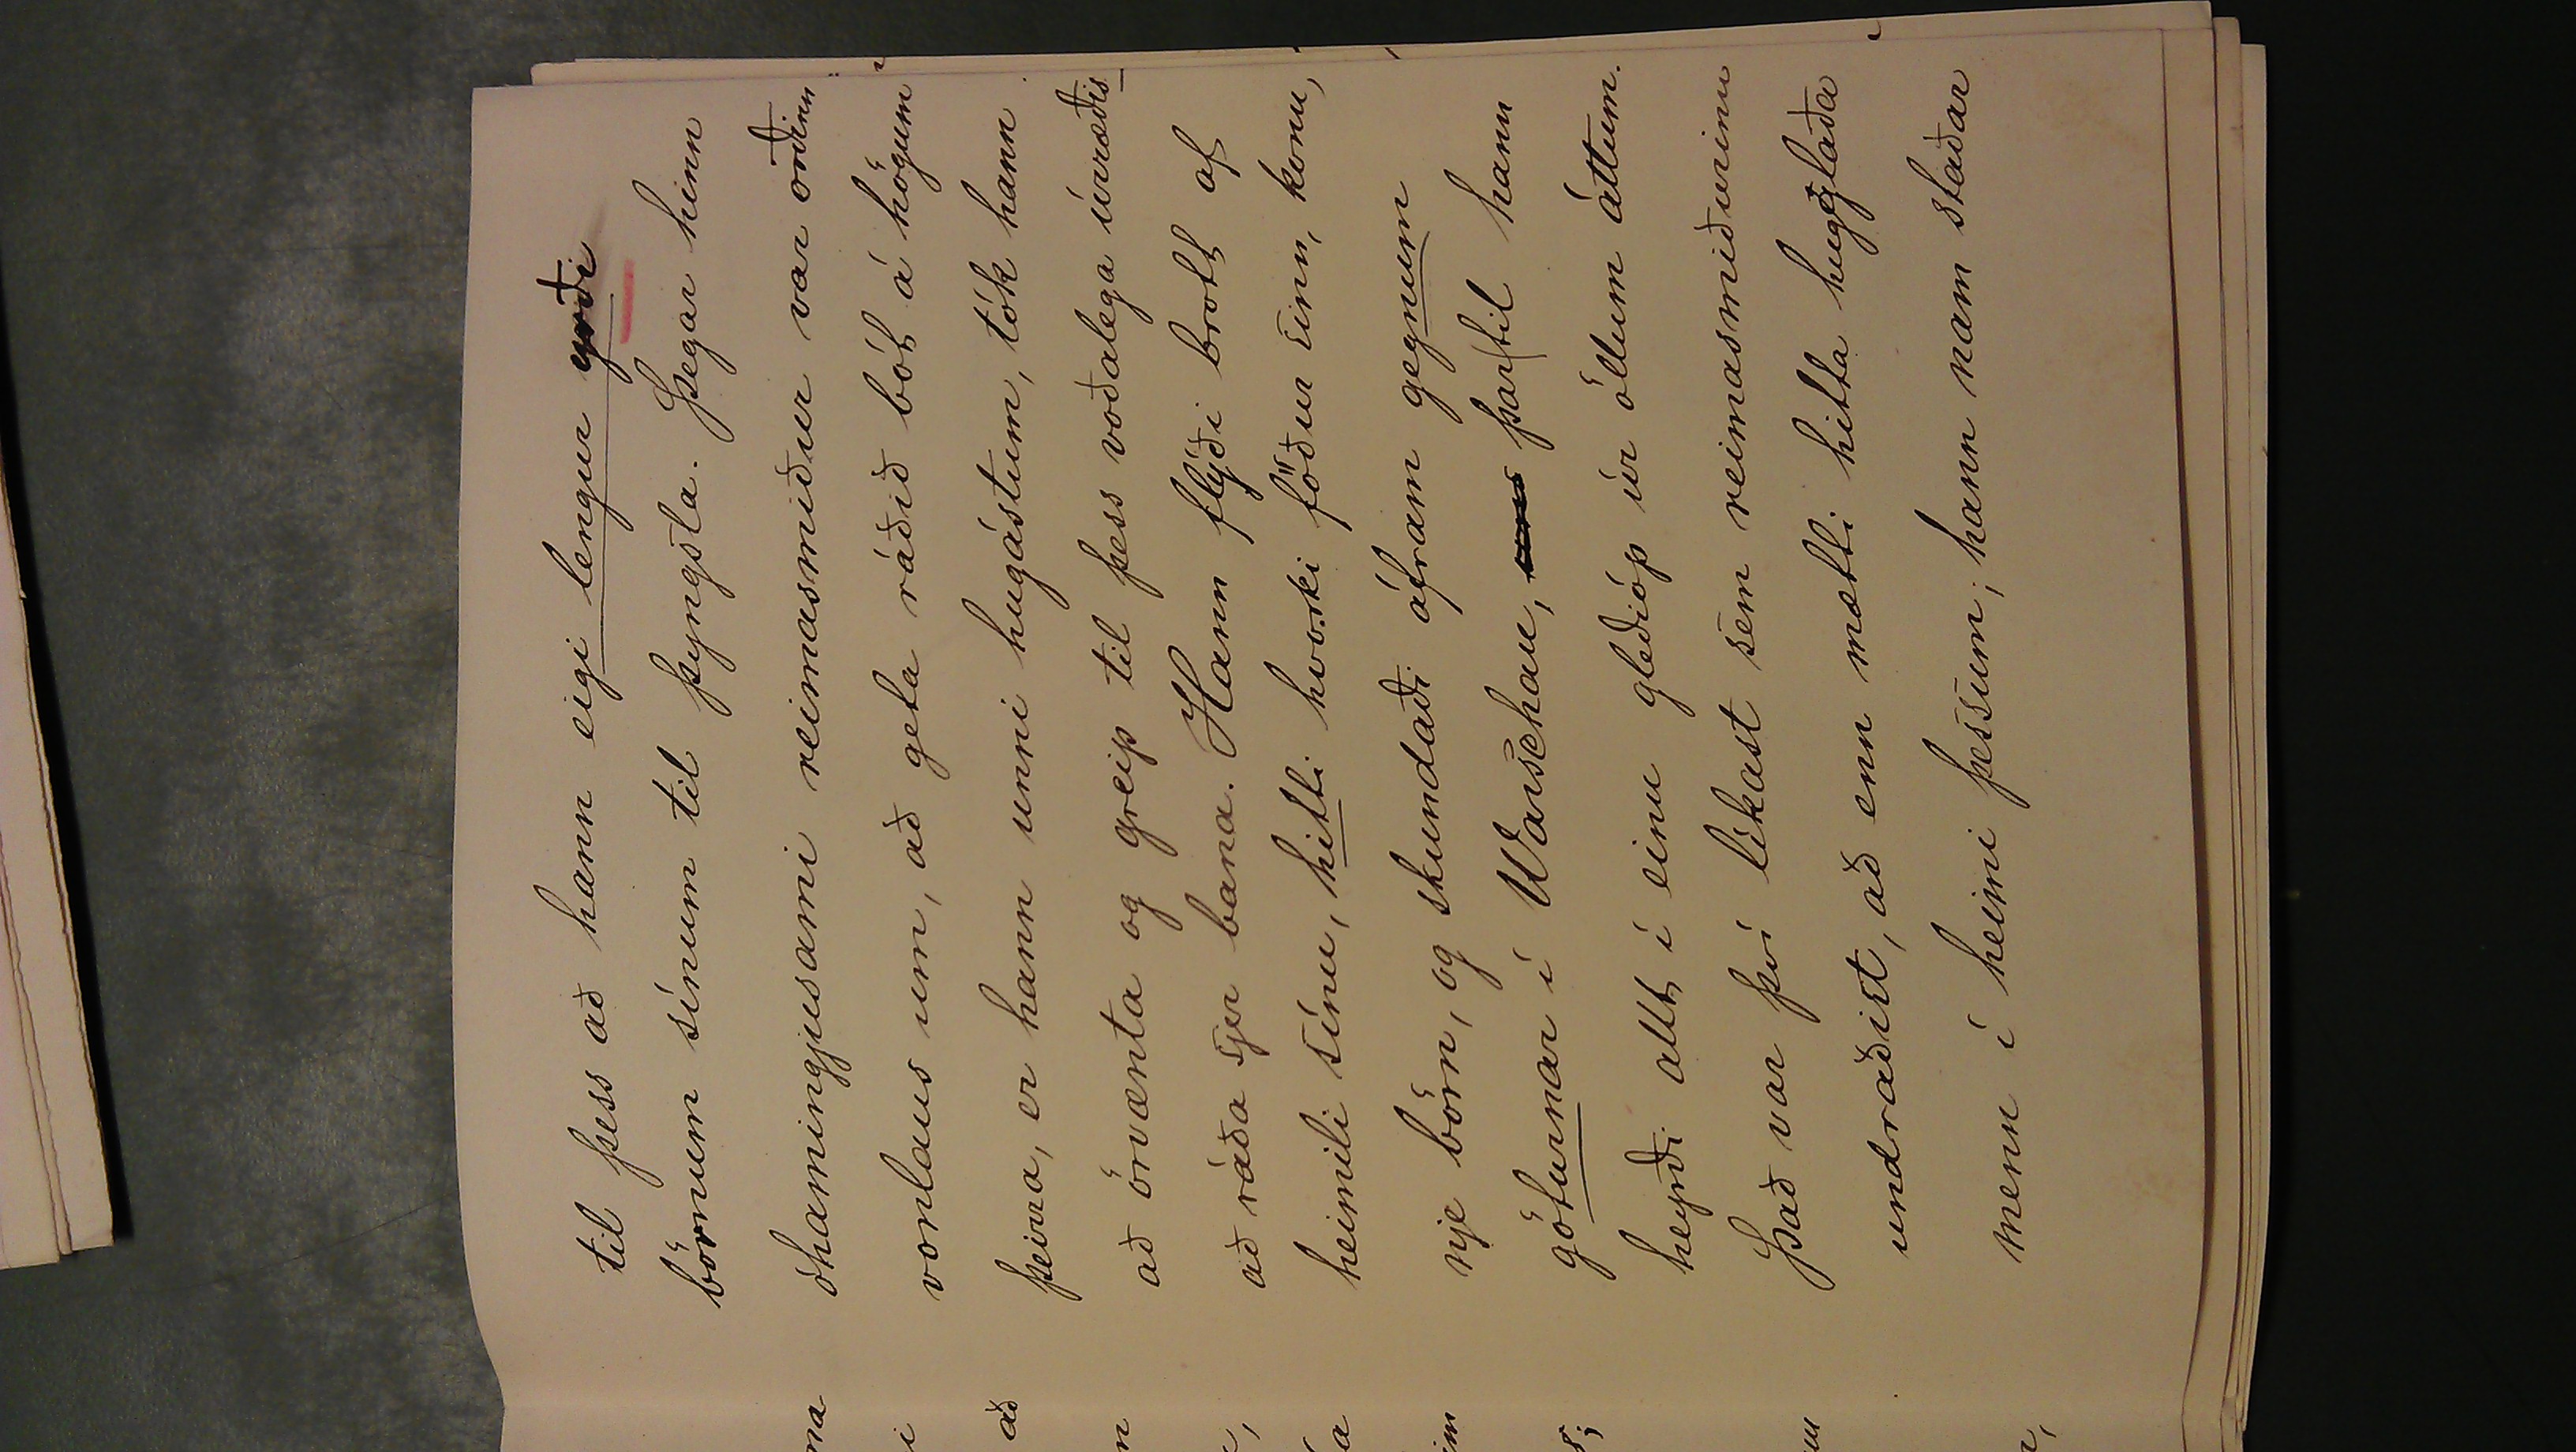 til þess að hann eigi lengur yrði
börnum sínum til þyngsla. Þegar hinn
óhamingjusami reimasmiður var orðinn
vonlaus um, að geta ráðið bót á högum
þeirra, er hann unni hugástum, tók hann
að örvænta og greip til þess voðalega úrræðis
að ráða sjer bana. Hann flýði brott af
heimili sínu, hitti hvorki föður sinn, konu,
nje börn, og skundaði áfram gegnum
göturnar í Warschau, þar til hann
heyrði allt í einu gleðióp úr öllum áttum.
Það var því líkast sem reimasmiðurinn
undraðist, að enn mætti hitta hugglaða
menn í heimi þessum; hann nam staðar